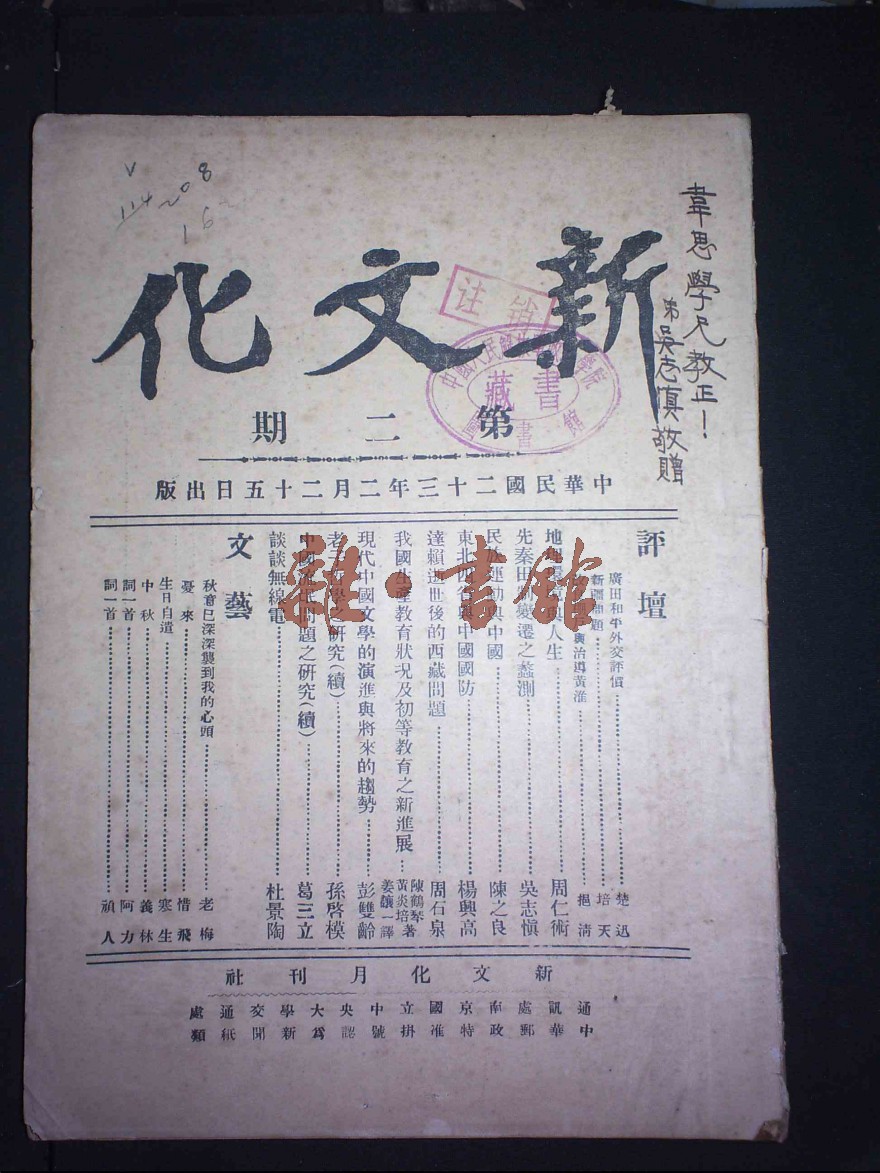 新文化
第二期
中華民國二十三年二月二十五日出版
韋思學兄教正！
弟吳志慎敬贈
注銷
藏書
評壇
廣田和平外交評價 楚迅
新疆問題 培天
興治導黃淮 挹清
人生 周仁術
先秦田制變遷之蠡測 吳志慎
民族運動與中國 陳之良
東北四省與中國國防 楊興高
達賴逝世後的西藏問題 周石泉
我國生產教育狀況及初等教育之新進展 陳鶴琴 黃炎培著 姜鑲一譯
現代中國文學的演進與將來的趨勢 彭雙齡
老子哲學之研究(續) 孫啓模
中國 問題之研究(續) 葛三立
談談無線電 杜景陶
文藝
秋意已深深襲到我的心頭 老梅
憂來 惜飛
生日自遣 寒生
中秋 義林
詞一首 阿力
詞一首 頑人
新文化月刊社
通訊處南京國立中央大學交通處
中華郵政特准掛號認為新聞紙類
雜·書館
V
114
208